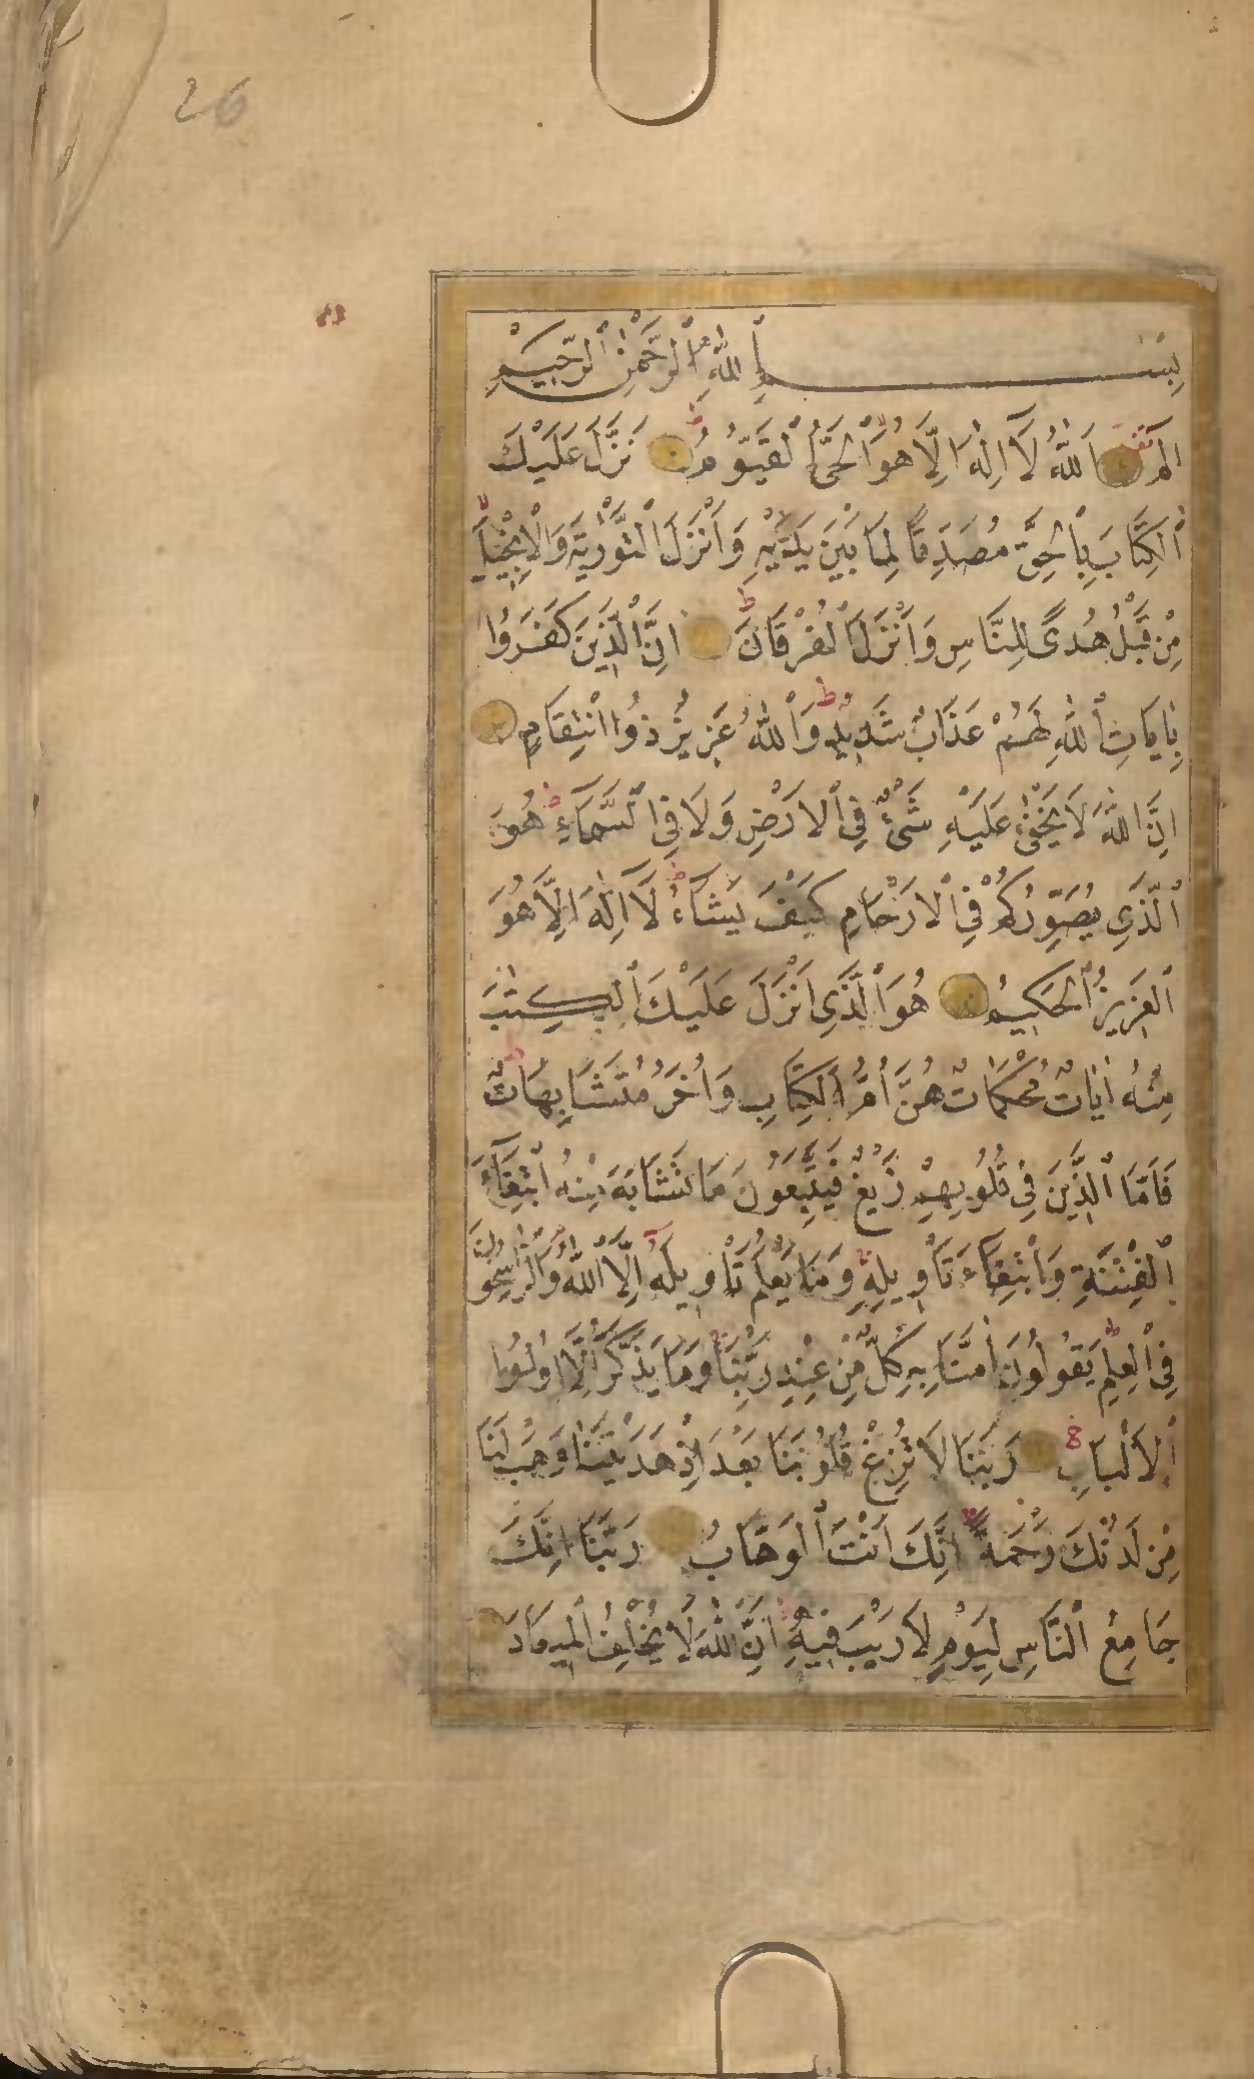 26
بِسْمِ اللّٰهِ الرَّحْمٰنِ الرَّحِيمِ
الم اَللّٰهُ لَا اِلٰهَ اِلَّا هُوَ الْحَىُّ الْقَيُّومُ نَزَّلَ عَلَيْكَ
الْكِتَابَ بِالْحَقِّ مُصَدِّقًا لِمَا بَيْنَ يَدَيْهِ وَاَنْزَلَ التَّوْرٰيةَ وَالْاِنْجِيلَ
مِنْ قَبْلُ هُدًى لِلنَّاسِ وَاَنْزَلَ الْفُرْقَانَ اِنَّ الَّذِينَ كَفَرُوا
بِاٰيَاتِ اللّٰهِ لَهُمْ عَذَابٌ شَدِيدٌ وَاللّٰهُ عَزِيزٌ ذُوا انْتِقَامٍ
اِنَّ اللّٰهَ لَا يَخْفٰى عَلَيْهِ شَىْءٌ فِى الْاَرْضِ وَلَا فِى السَّمَاءِ هُوَ
الَّذِى يُصَوِّرُكُمْ فِى الْاَرْحَامِ كَيْفَ يَشَاءُ لَا اِلٰهَ اِلَّا هُوَ
الْعَزِيزُ الْحَكِيمُ هُوَ الَّذِى اَنْزَلَ عَلَيْكَ الْكِتٰبَ
مِنْهُ اٰيَاتٌ مُحْكَمَاتٌ هُنَّ اُمُّ الْكِتَابِ وَاُخَرُ مُتَشَابِهَاتٌ
فَاَمَّا الَّذِينَ فِى قُلُوبِهِمْ زَيْغٌ فَيَتَّبِعُونَ مَا تَشَابَهَ مِنْهُ ابْتِغَاءَ
الْفِتْنَةِ وَابْتِغَاءَ تَاْوِيلِهِ وَمَا يَعْلَمُ تَاْوِيلَهُ اِلَّا اللّٰهُ وَالرّٰسِخُونَ
فِى الْعِلْمِ يَقُولُونَ اٰمَنَّا بِهِ كُلٌّ مِنْ عِنْدِ رَبِّنَا وَمَا يَذَّكَّرُ اِلَّا اُولُوا
الْاَلْبَابِ رَبَّنَا لَا تُزِغْ قُلُوبَنَا بَعْدَ اِذْ هَدَيْتَنَا وَهَبْ لَنَا
مِنْ لَدُنْكَ رَحْمَةً اِنَّكَ اَنْتَ الْوَهَّابُ رَبَّنَا اِنَّكَ
جَامِعُ النَّاسِ لِيَوْمٍ لَا رَيْبَ فِيهِ اِنَّ اللّٰهَ لَا يُخْلِفُ الْمِيعَادَ